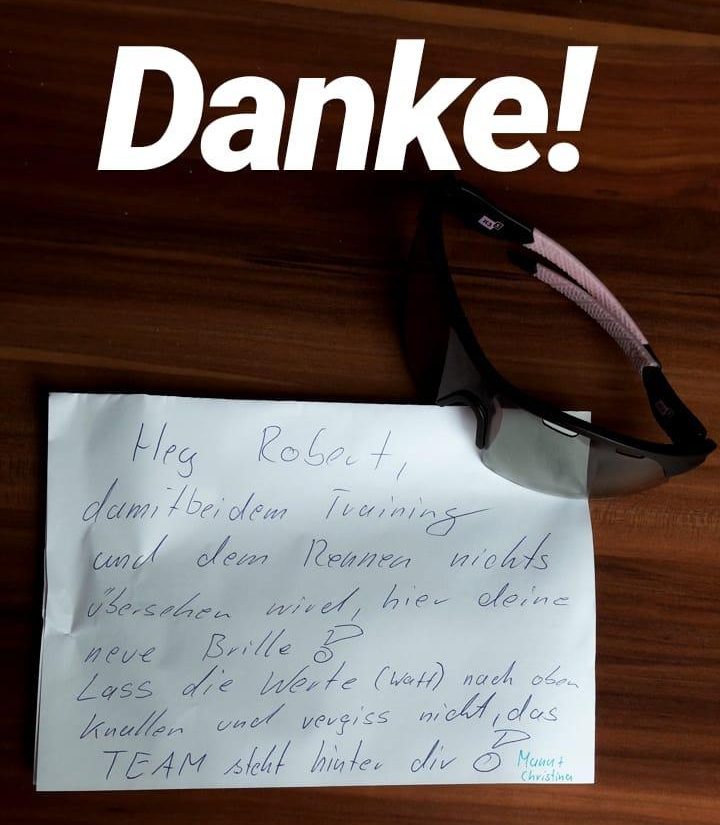 Danke!
Hey Robert,
damit bei dem Training
und dem Rennen nichts
übersehen wird, hier deine
neue Brille!
Lass die Werte (Watt) nach oben
knallen und vergiss nicht, das
TEAM steht hinter dir!
Manu +
Christina